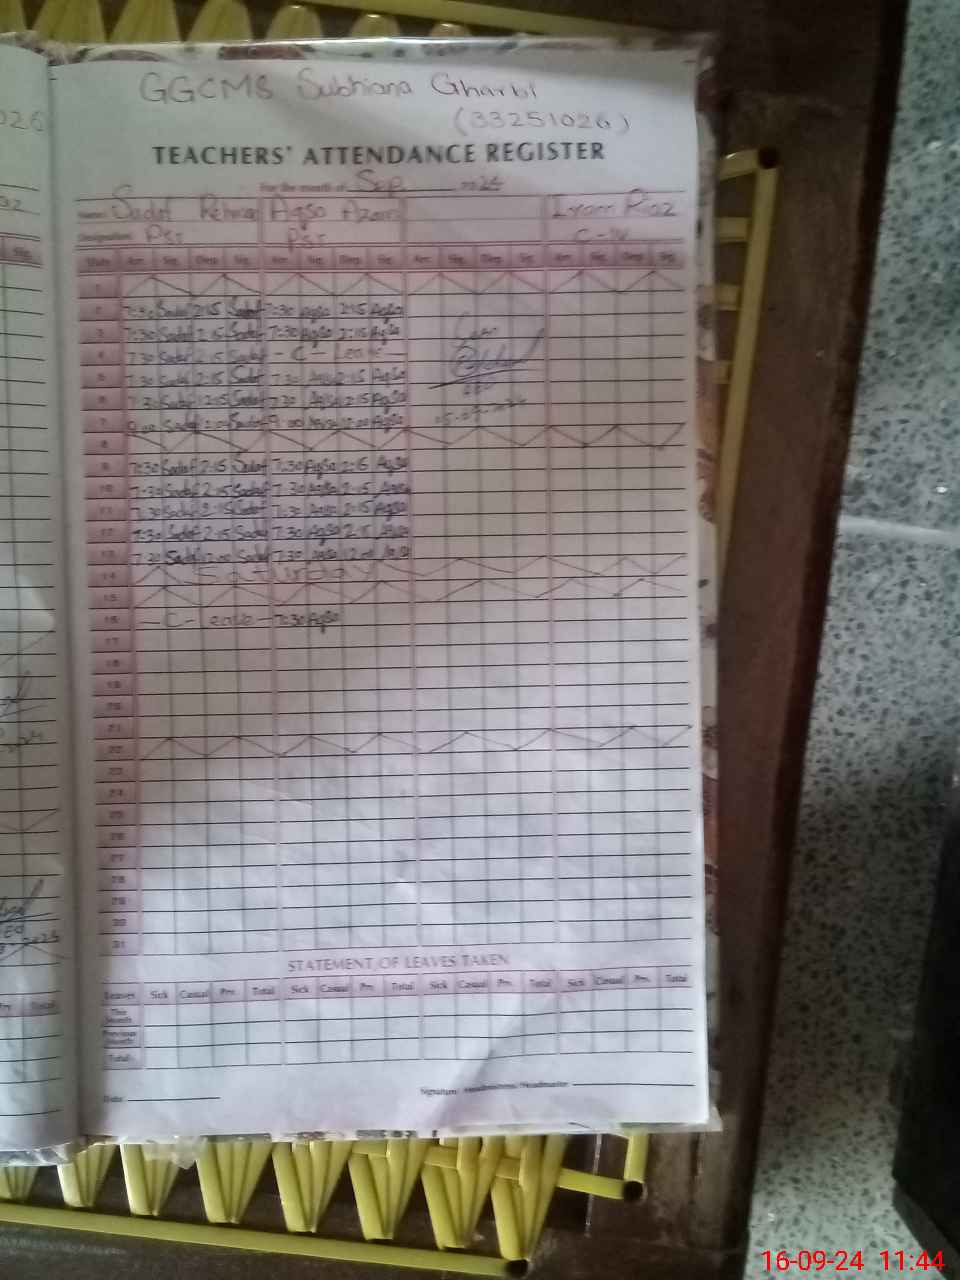 GGCMS Subhiana Gharbi
(33251026)
TEACHERS' ATTENDANCE REGISTER
For the month of Sep. 2024
Name: Sadaf Rehman Aqsa Azam Iram Riaz
Designation: PST PST C-IV
Date Arr. Sig. Dep. Sig. Arr. Sig. Dep. Sig. Arr. Sig. Dep. Sig. Arr. Sig. Dep. Sig.
1
2 7:30 Sadaf 2:15 Sadaf 7:30 Aqsa 2:15 Aqsa
3 7:30 Sadaf 2:15 Sadaf 7:30 Aqsa 2:15 Aqsa
4 7:30 Sadaf 2:15 Sadaf - C - Leave -
5 7:30 Sadaf 2:15 Sadaf 7:30 Aqsa 2:15 Aqsa
6 7:30 Sadaf 12:15 Sadaf 7:30 Aqsa 2:15 Aqsa
7 9:00 Sadaf Sadaf 9:00 Aqsa 12:00 Aqsa
8
9 7:30 Sadaf 2:15 Sadaf 7:30 Aqsa 2:15 Aqsa
10 7:30 Sadaf 2:15 Sadaf 7:30 Aqsa 2:15 Aqsa
11 7:30 Sadaf 2:15 Sadaf 7:30 Aqsa 2:15 Aqsa
12 7:30 Sadaf 2:15 Sadaf 7:30 Aqsa 2:15 Aqsa
13 7:30 Sadaf 12:00 Sadaf 7:30 Aqsa 12:00 Aqsa
14 Saturday
15
16 - C - Leave - 7:30 Aqsa
17
18
19
20
21
22
23
24
25
26
27
28
29
30
31
STATEMENT OF LEAVES TAKEN
Leaves Sick Casual Prv. Total Sick Casual Prv. Total Sick Casual Prv. Total Sick Casual Prv. Total
This Month
Previous Month
Total
Date Signature Headmistress/Headmaster
16-09-24 11:44